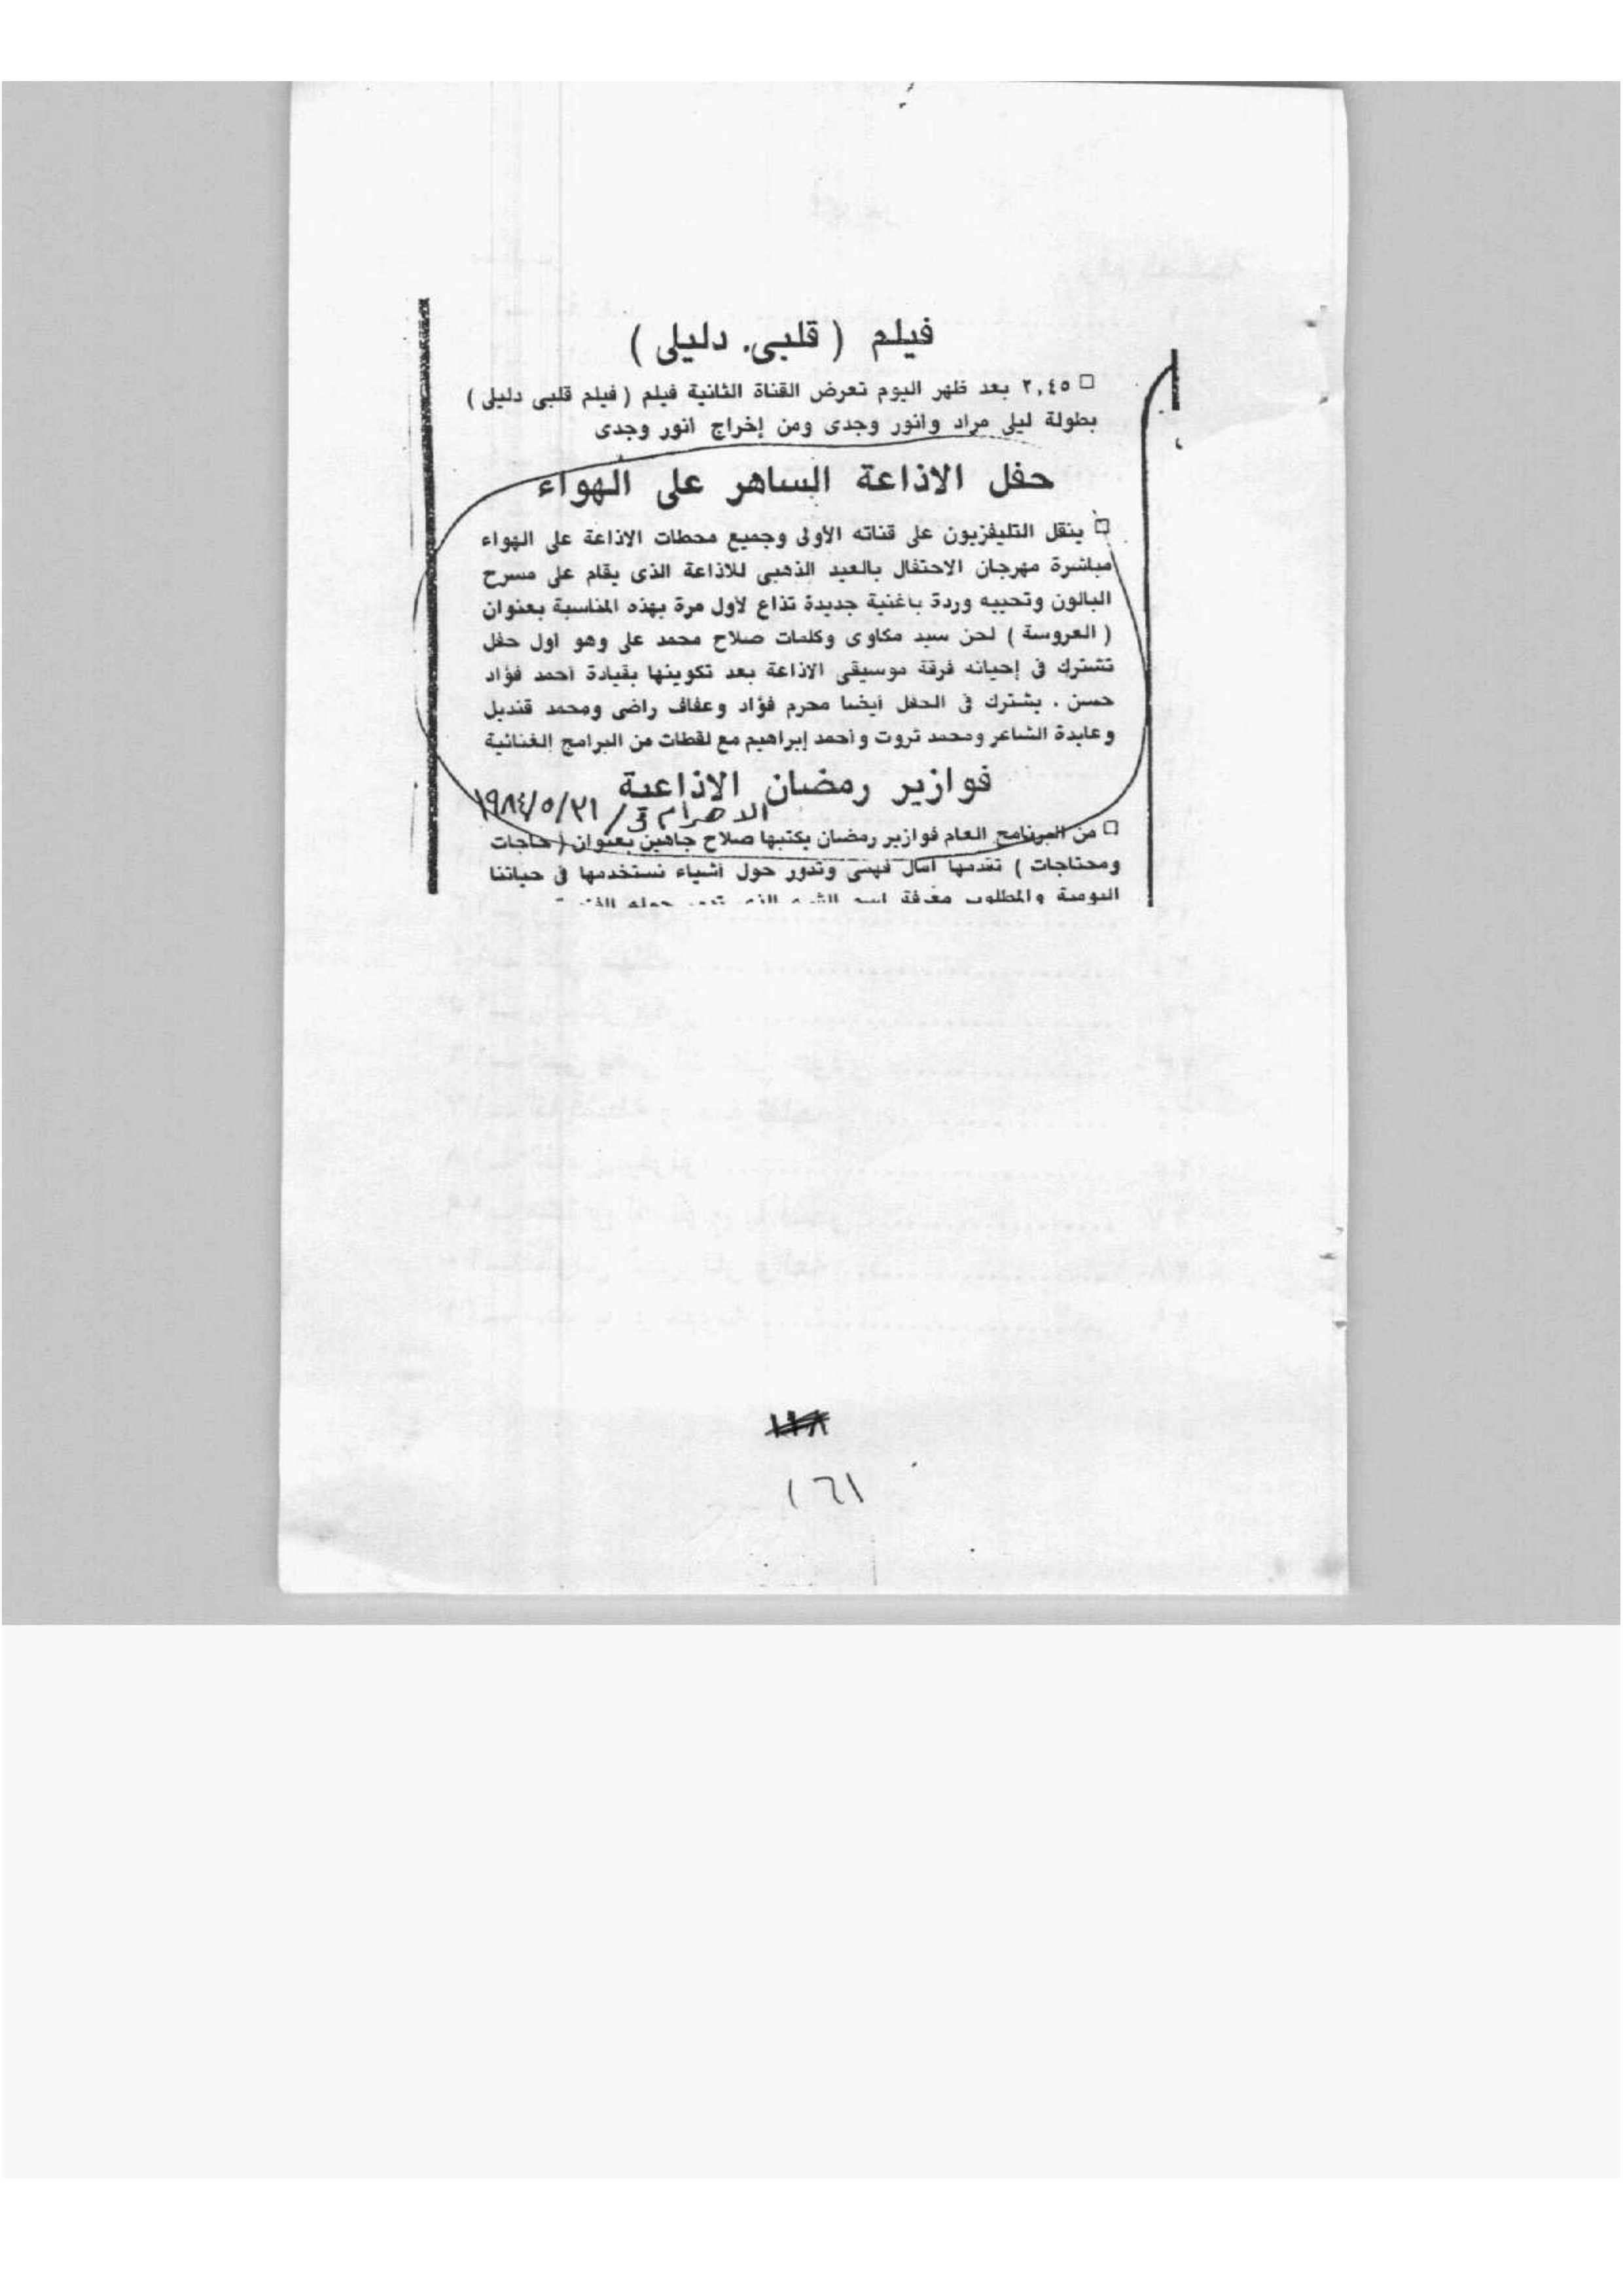 فيلم ( قلبى. دليلى )
□ ٢,٤٥ بعد ظهر اليوم تعرض القناة الثانية فيلم ( فيلم قلبى دليلى )
بطولة ليلى مراد وانور وجدى ومن إخراج انور وجدى
حفل الاذاعة الساهر على الهواء
□ ينقل التليفزيون على قناته الأولى وجميع محطات الاذاعة على الهواء
مباشرة مهرجان الاحتفال بالعيد الذهبى للاذاعة الذى يقام على مسرح
البالون وتحييه وردة باغنية جديدة تذاع لاول مرة بهذه المناسبة بعنوان
( العروسة ) لحن سيد مكاوى وكلمات صلاح محمد على وهو اول حفل
تشترك فى إحيائه فرقة موسيقى الاذاعة بعد تكوينها بقيادة أحمد فؤاد
حسن . يشترك فى الحفل أيضا محرم فؤاد وعفاف راضى ومحمد قنديل
وعايدة الشاعر ومحمد ثروت وأحمد إبراهيم مع لقطات من البرامج الغنائية
فوازير رمضان الاذاعية
الاهرام فى / ٣١/٥/١٩٨٤
□ من البرنامج العام فوازير رمضان يكتبها صلاح جاهين بعنوان ( حاجات
ومحتاجات ) تقدمها آمال فهمى وتدور حول أشياء نستخدمها فى حياتنا
اليومية والمطلوب معرفة اسم الشىء الذى تدور حوله
١٦١